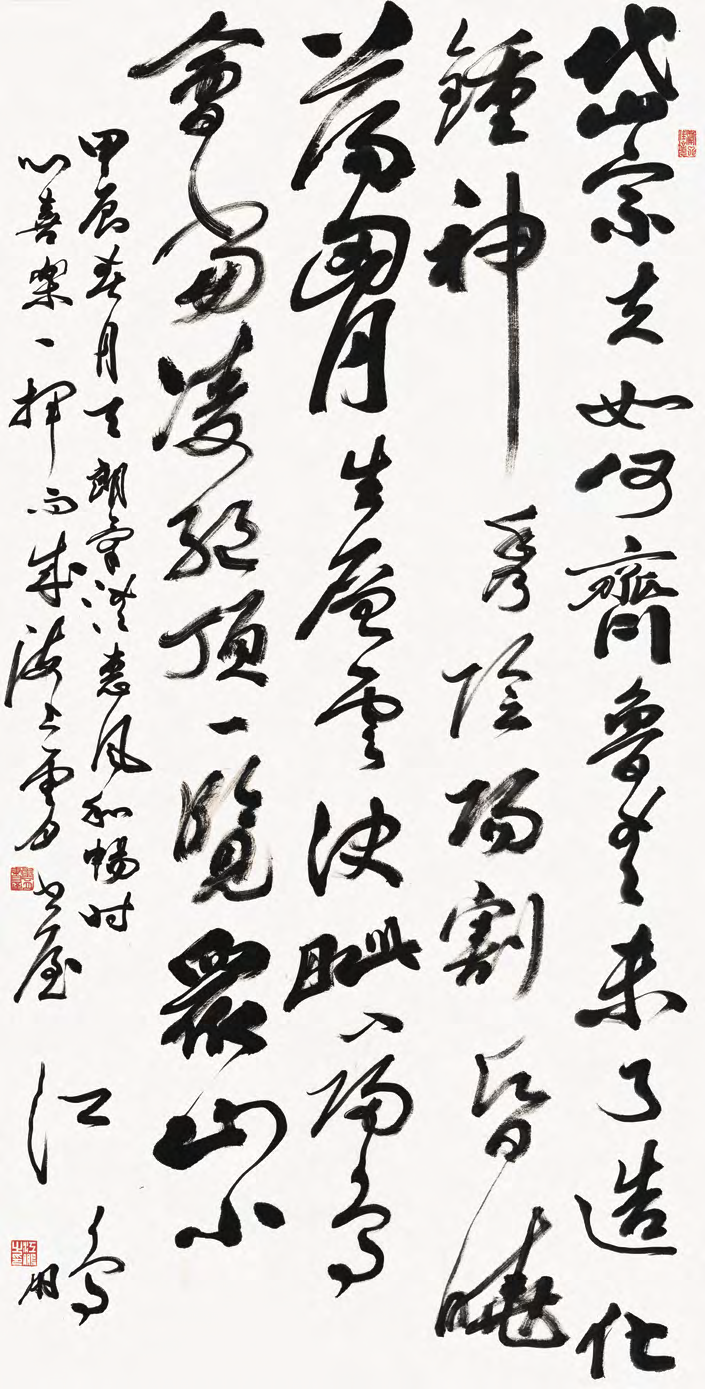 岱宗夫如何齊魯青未了造化
鍾神秀陰陽割昏曉
蕩胷生層雲決眥入歸鳥
會當凌絕頂一覽眾山小
甲辰春月天朗氣清惠風和暢时
心喜樂一揮而成海上书屋
江鵬